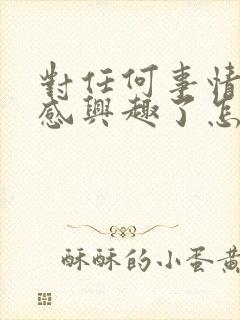 對任何事情
感興趣了怎
酥酥的小蛋黃